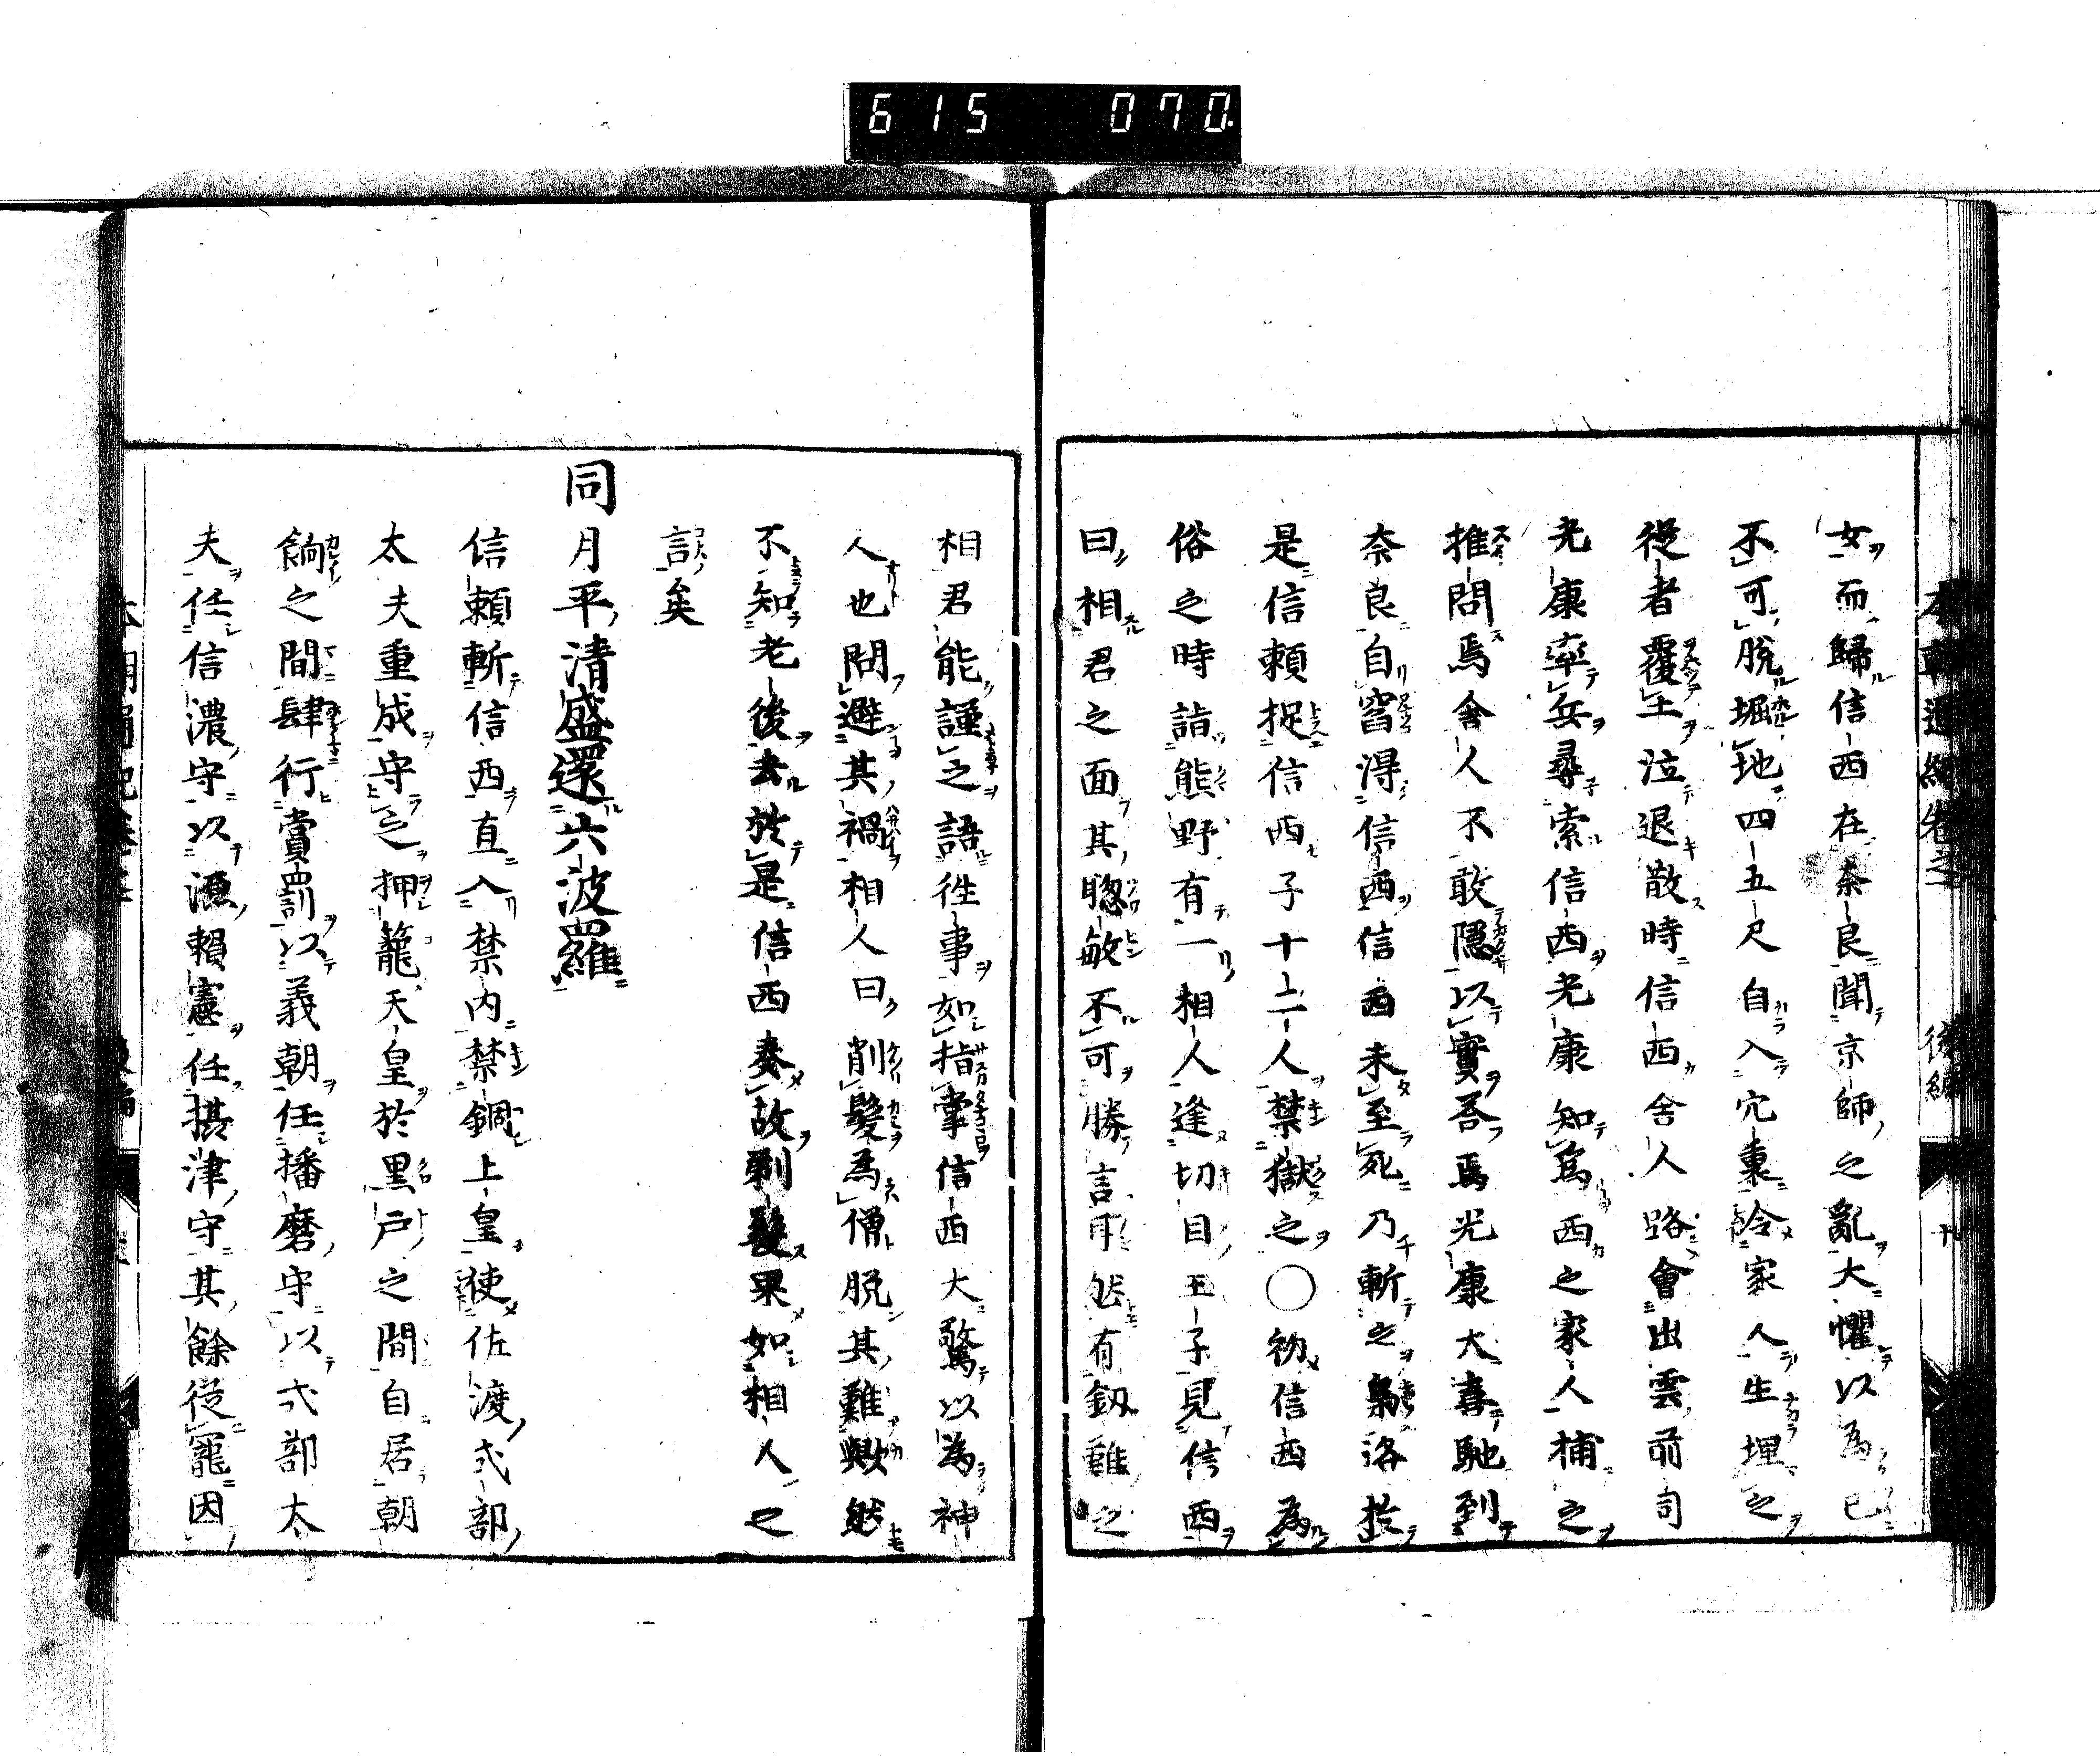 615 070
女而歸信西在奈良聞京師之亂大懼以為已
不可脫堀地四五尺自入穴裏令家人生埋之
從者覆土泣退散時信西舍人路會出雲前司
光康率兵尋索信西光康知為西之家人捕之
推問焉舍人不敢隱以實吾焉光康大喜馳到
奈良自窖得信西信西未至死乃斬之梟洛於
是信賴捉信西子十二人禁獄之○初信西為
俗之時詣熊野有一相人逢切目王子見信西
曰相君之面其聰敏不可勝言耳然有釼難之
相君能謹之語徃事如指掌信西大驚以為神
人也問避其禍相人曰削髮為僧脫其難歟然
不知老後去於是信西奏故剃髮果如相人之
言矣
同月平清盛還六波羅
信賴斬信西直入禁內禁錮上皇使佐渡式部
太夫重成守之押籠天皇於黑戶之間自居朝
餉之間肆行賞罰以義朝任播磨守以式部太
夫任信濃守以源賴憲任攝津守其餘從寵因